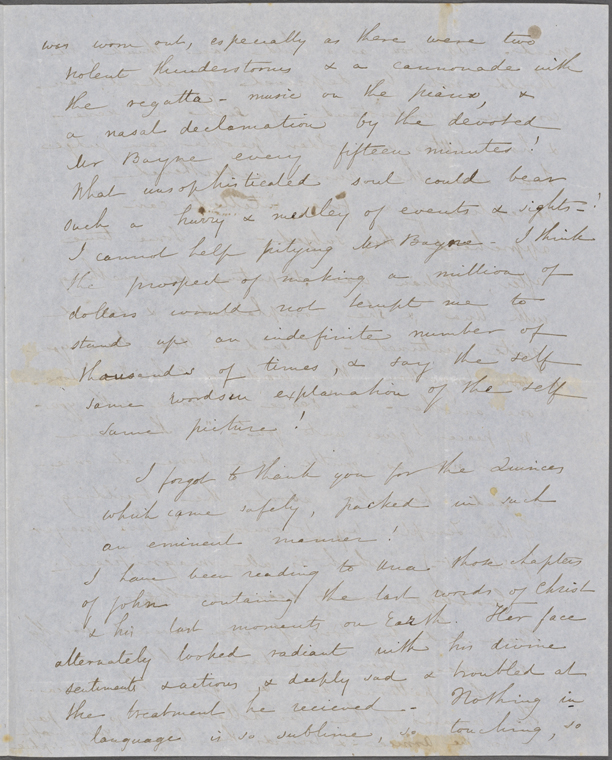 was worn out, especially as there were two
violent thunderstorms & a cannonade with
the regatta - music on the piano, &
a nasal declamation by the devoted
Mr Bayne every fifteen minutes!
What unsophisticated soul could bear
such a hurry & medley of events & sights - !
I cannot help pitying Mr Bayne - I think
the prospect of making a million of
dollars would not tempt me to
stand up an indefinite number of
thousands of times, & say the self
same words in explanation of the self
same picture!
I forgot to thank you for the Quinces
which came safely, packed in such
an eminent manner!
I have been reading to Una those chapters
of John containing the last words of Christ
& his last moments on Earth. Her face
alternately looked radiant with his divine
sentiments & actions, & deeply sad & troubled at
the treatment he recieved - Nothing in
language is so sublime, so touching, so